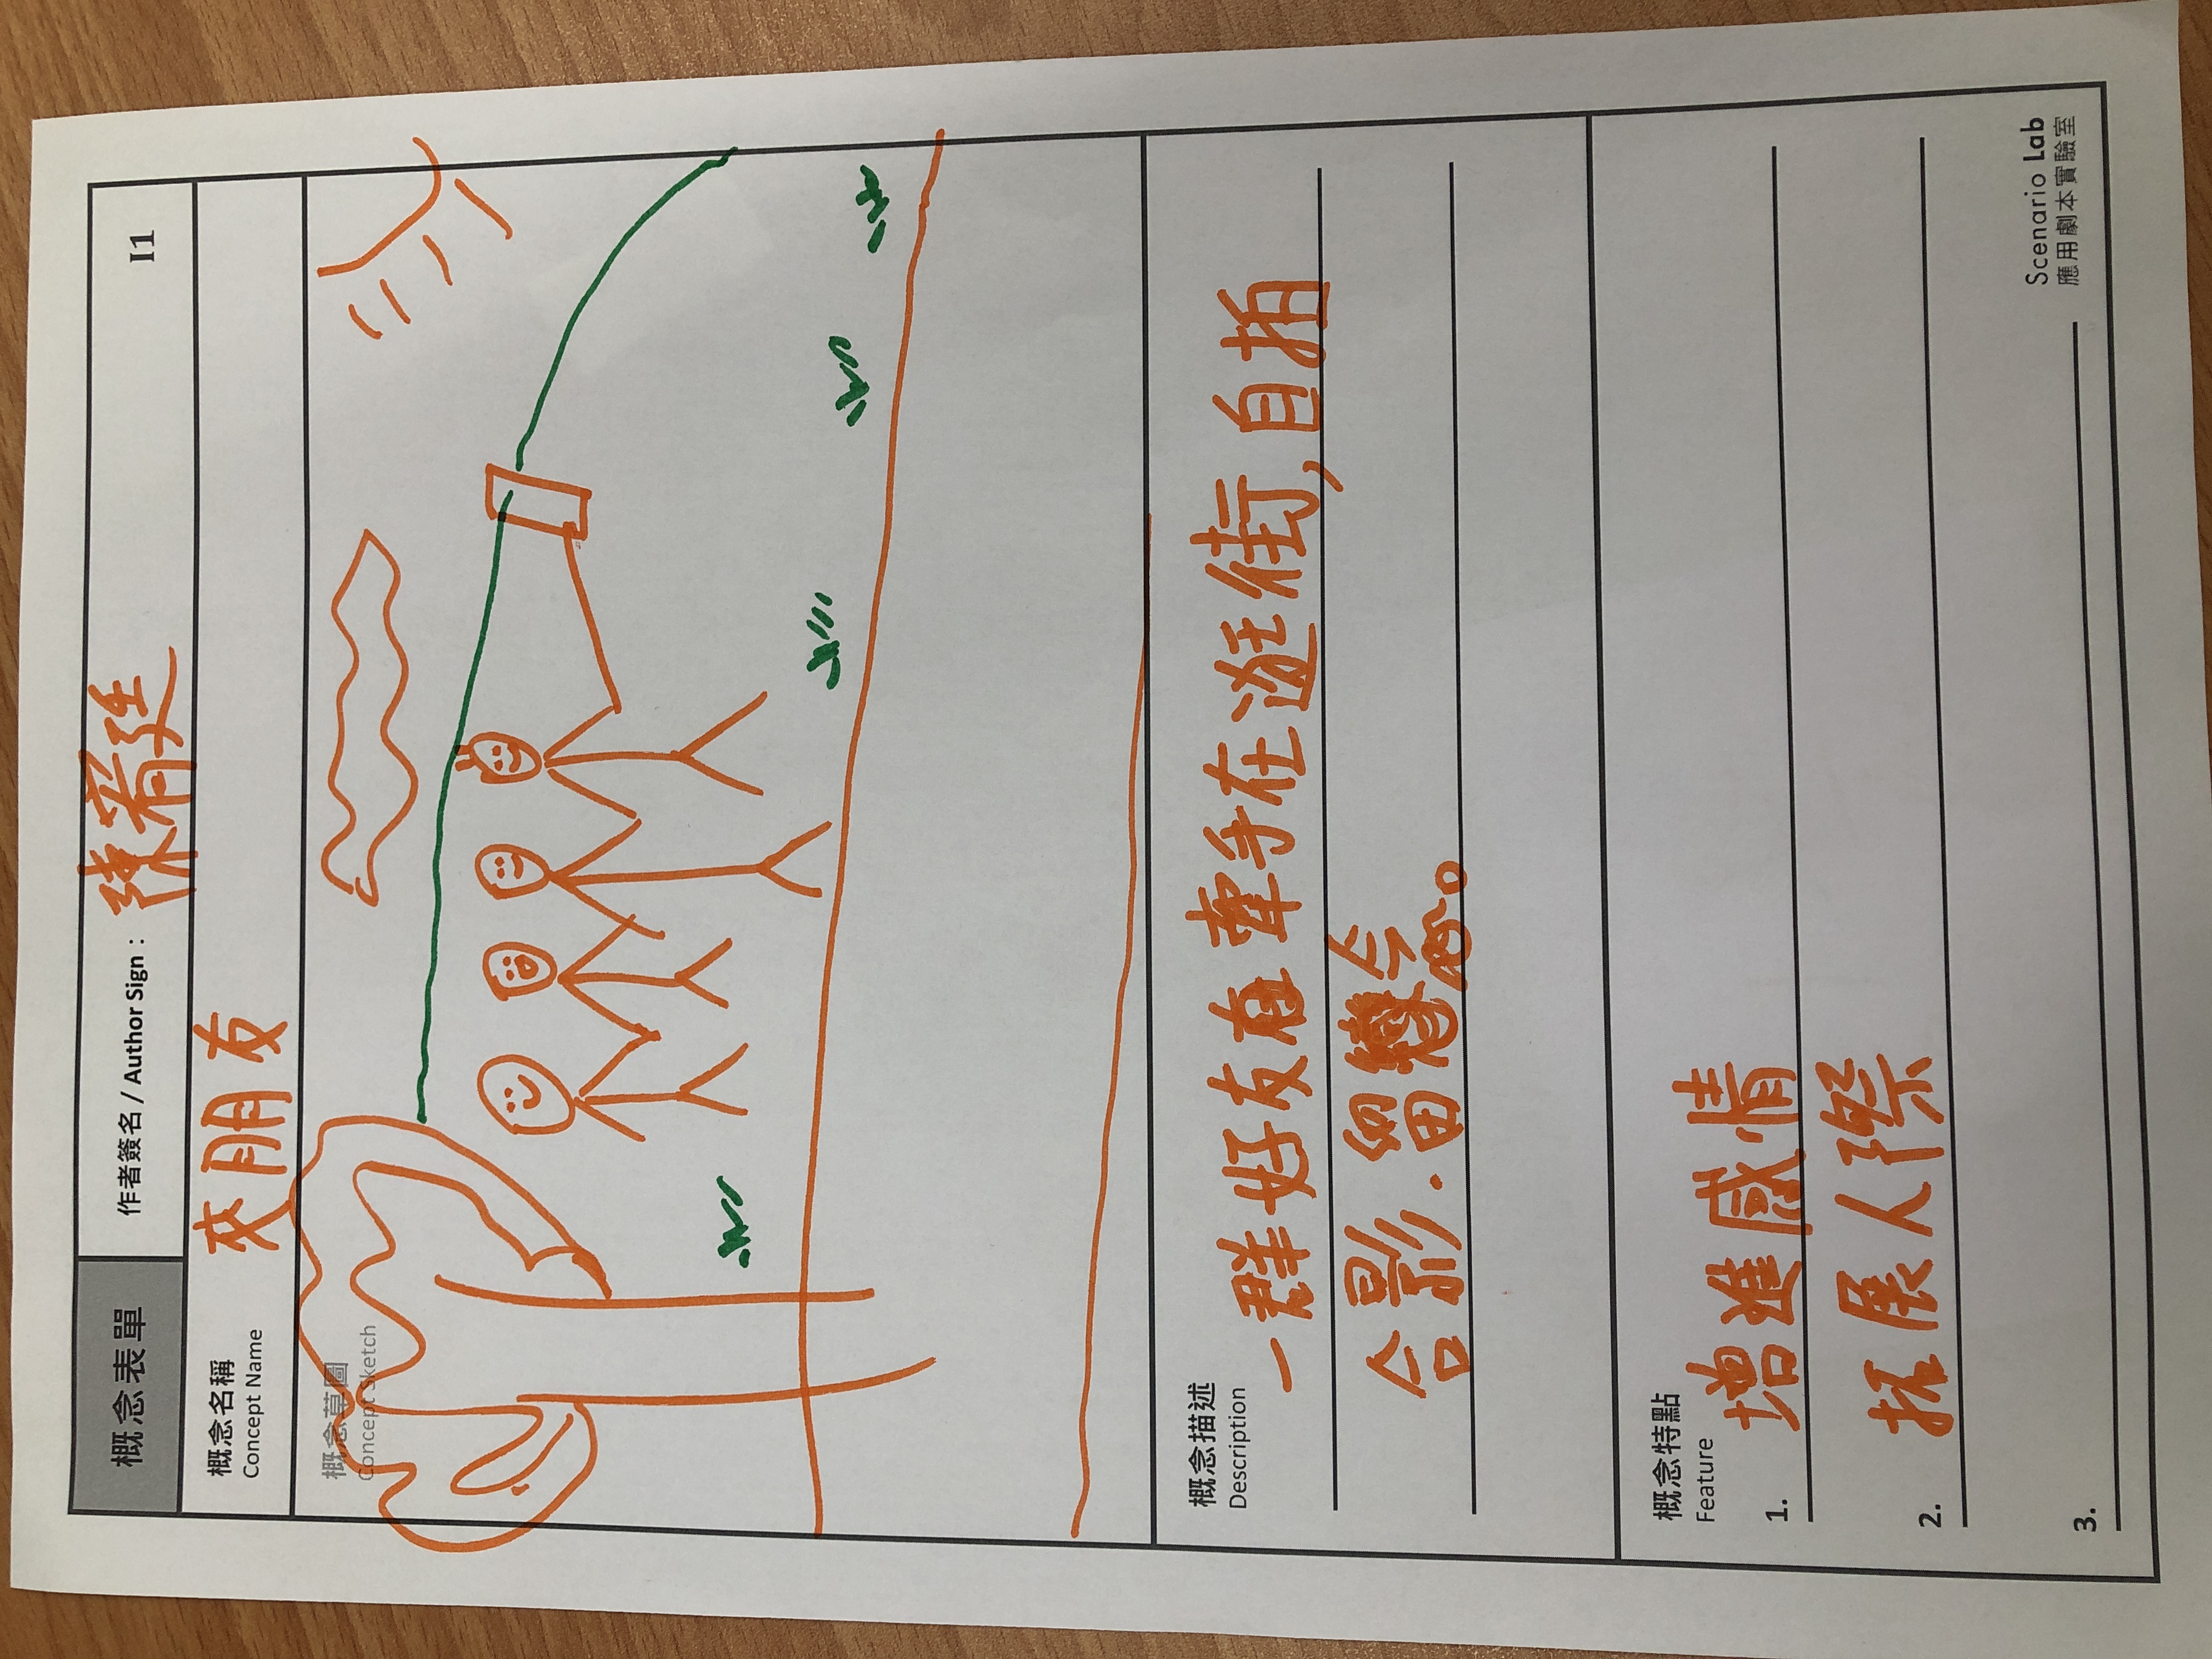 概念表單
作者簽名 / Author Sign： 陳宥廷
I1
概念名稱
Concept Name
交朋友
概念草圖
Concept Sketch
概念描述
Description
一群好友在牽手在逛街,自拍
合影.留戀念。
概念特點
Feature
1. 增進感情
2. 拓展人際
3.
Scenario Lab
應用劇本實驗室